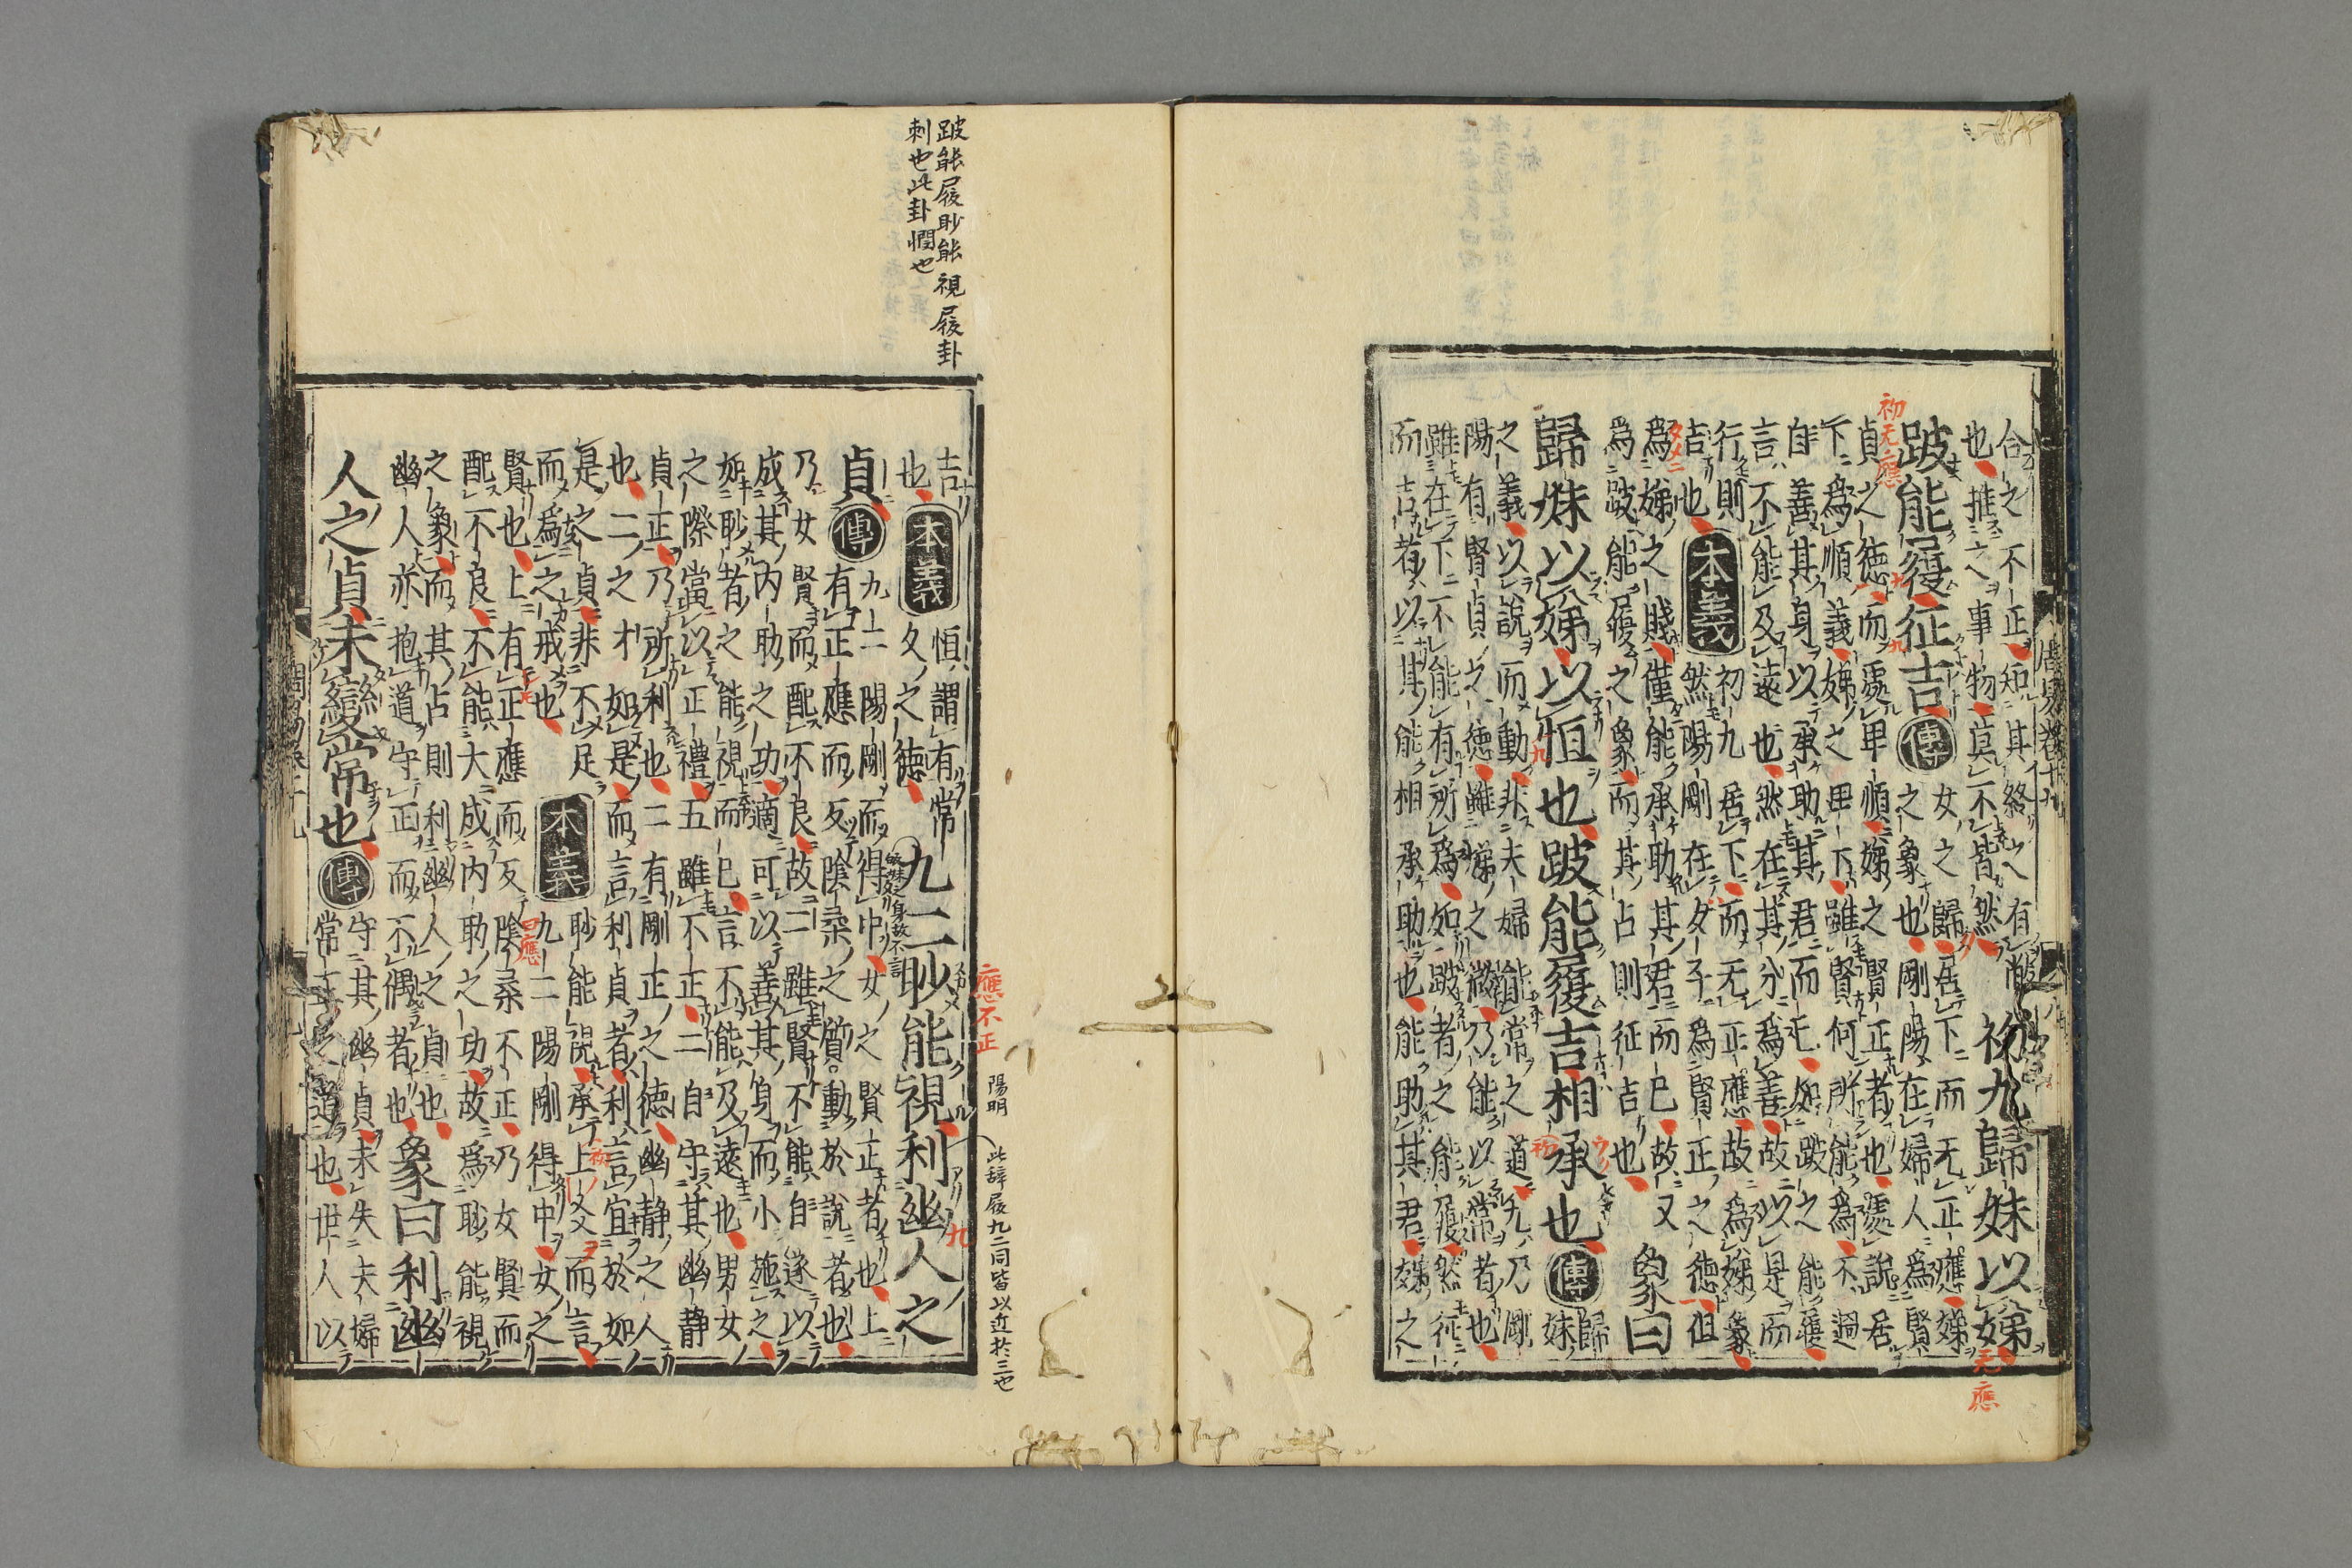 合之不正知其終之有敝
也推之事物莫不皆然 初九歸妹以娣
跛能履征吉 傳 女之歸居下而无正應娣
之象也剛陽在婦人爲賢
貞之德而處卑順娣之賢正者也處說居
下爲順義娣之卑下雖賢何所能爲不過
自善其身以承助其君而已如跛之能履
言不能及遠也然在其分爲善故以是而
行則吉也 本義 初九居下而无正應故爲娣象
然陽剛在女子爲賢正之德但
爲娣之賤僅能承助其君而已故又
爲跛能履之象而其占則征吉也 象曰
歸妹以娣以恒也跛能履吉相承也 傳 歸
妹
之義以說而動非夫婦能常之道九乃剛
陽有賢貞之德雖娣之微乃能以常者也
雖在下不能有所爲如跛者之能履然征
而吉者以其能相承助也能助其君娣之
吉也 本義 恒謂有常
久之德 九二眇能視利幽人之
貞 傳 九二陽剛而得中女之賢正者也上
有正應而反陰柔之質動於說者也
乃女賢而配不良故二雖賢不能自遂以
成其内助之功適可以善其身而小施之
如眇者之能視而已言不能及遠也男女
之際當以正禮五雖不正二自守其幽静
貞正乃所利也二有剛正之德幽静之人
也二之才如是而言利貞者利言宜於如
是之貞非不足
而爲之戒也 本義 眇能視承上爻而言
九二陽剛得中女之
賢也上有正應而反陰柔不正乃女賢而
配不良不能大成内助之功故爲眇能視
之象而其占則利幽人之貞也
幽人亦抱道守正而不偶者也 象曰利幽
人之貞未變常也 傳 守其幽貞未失夫婦
常正之道也世人以
跛能履眇能視履卦
刺也此卦憫也
陽明 此辞履九二同皆以近於三也
應不正
初无應
无應
周易卷十九